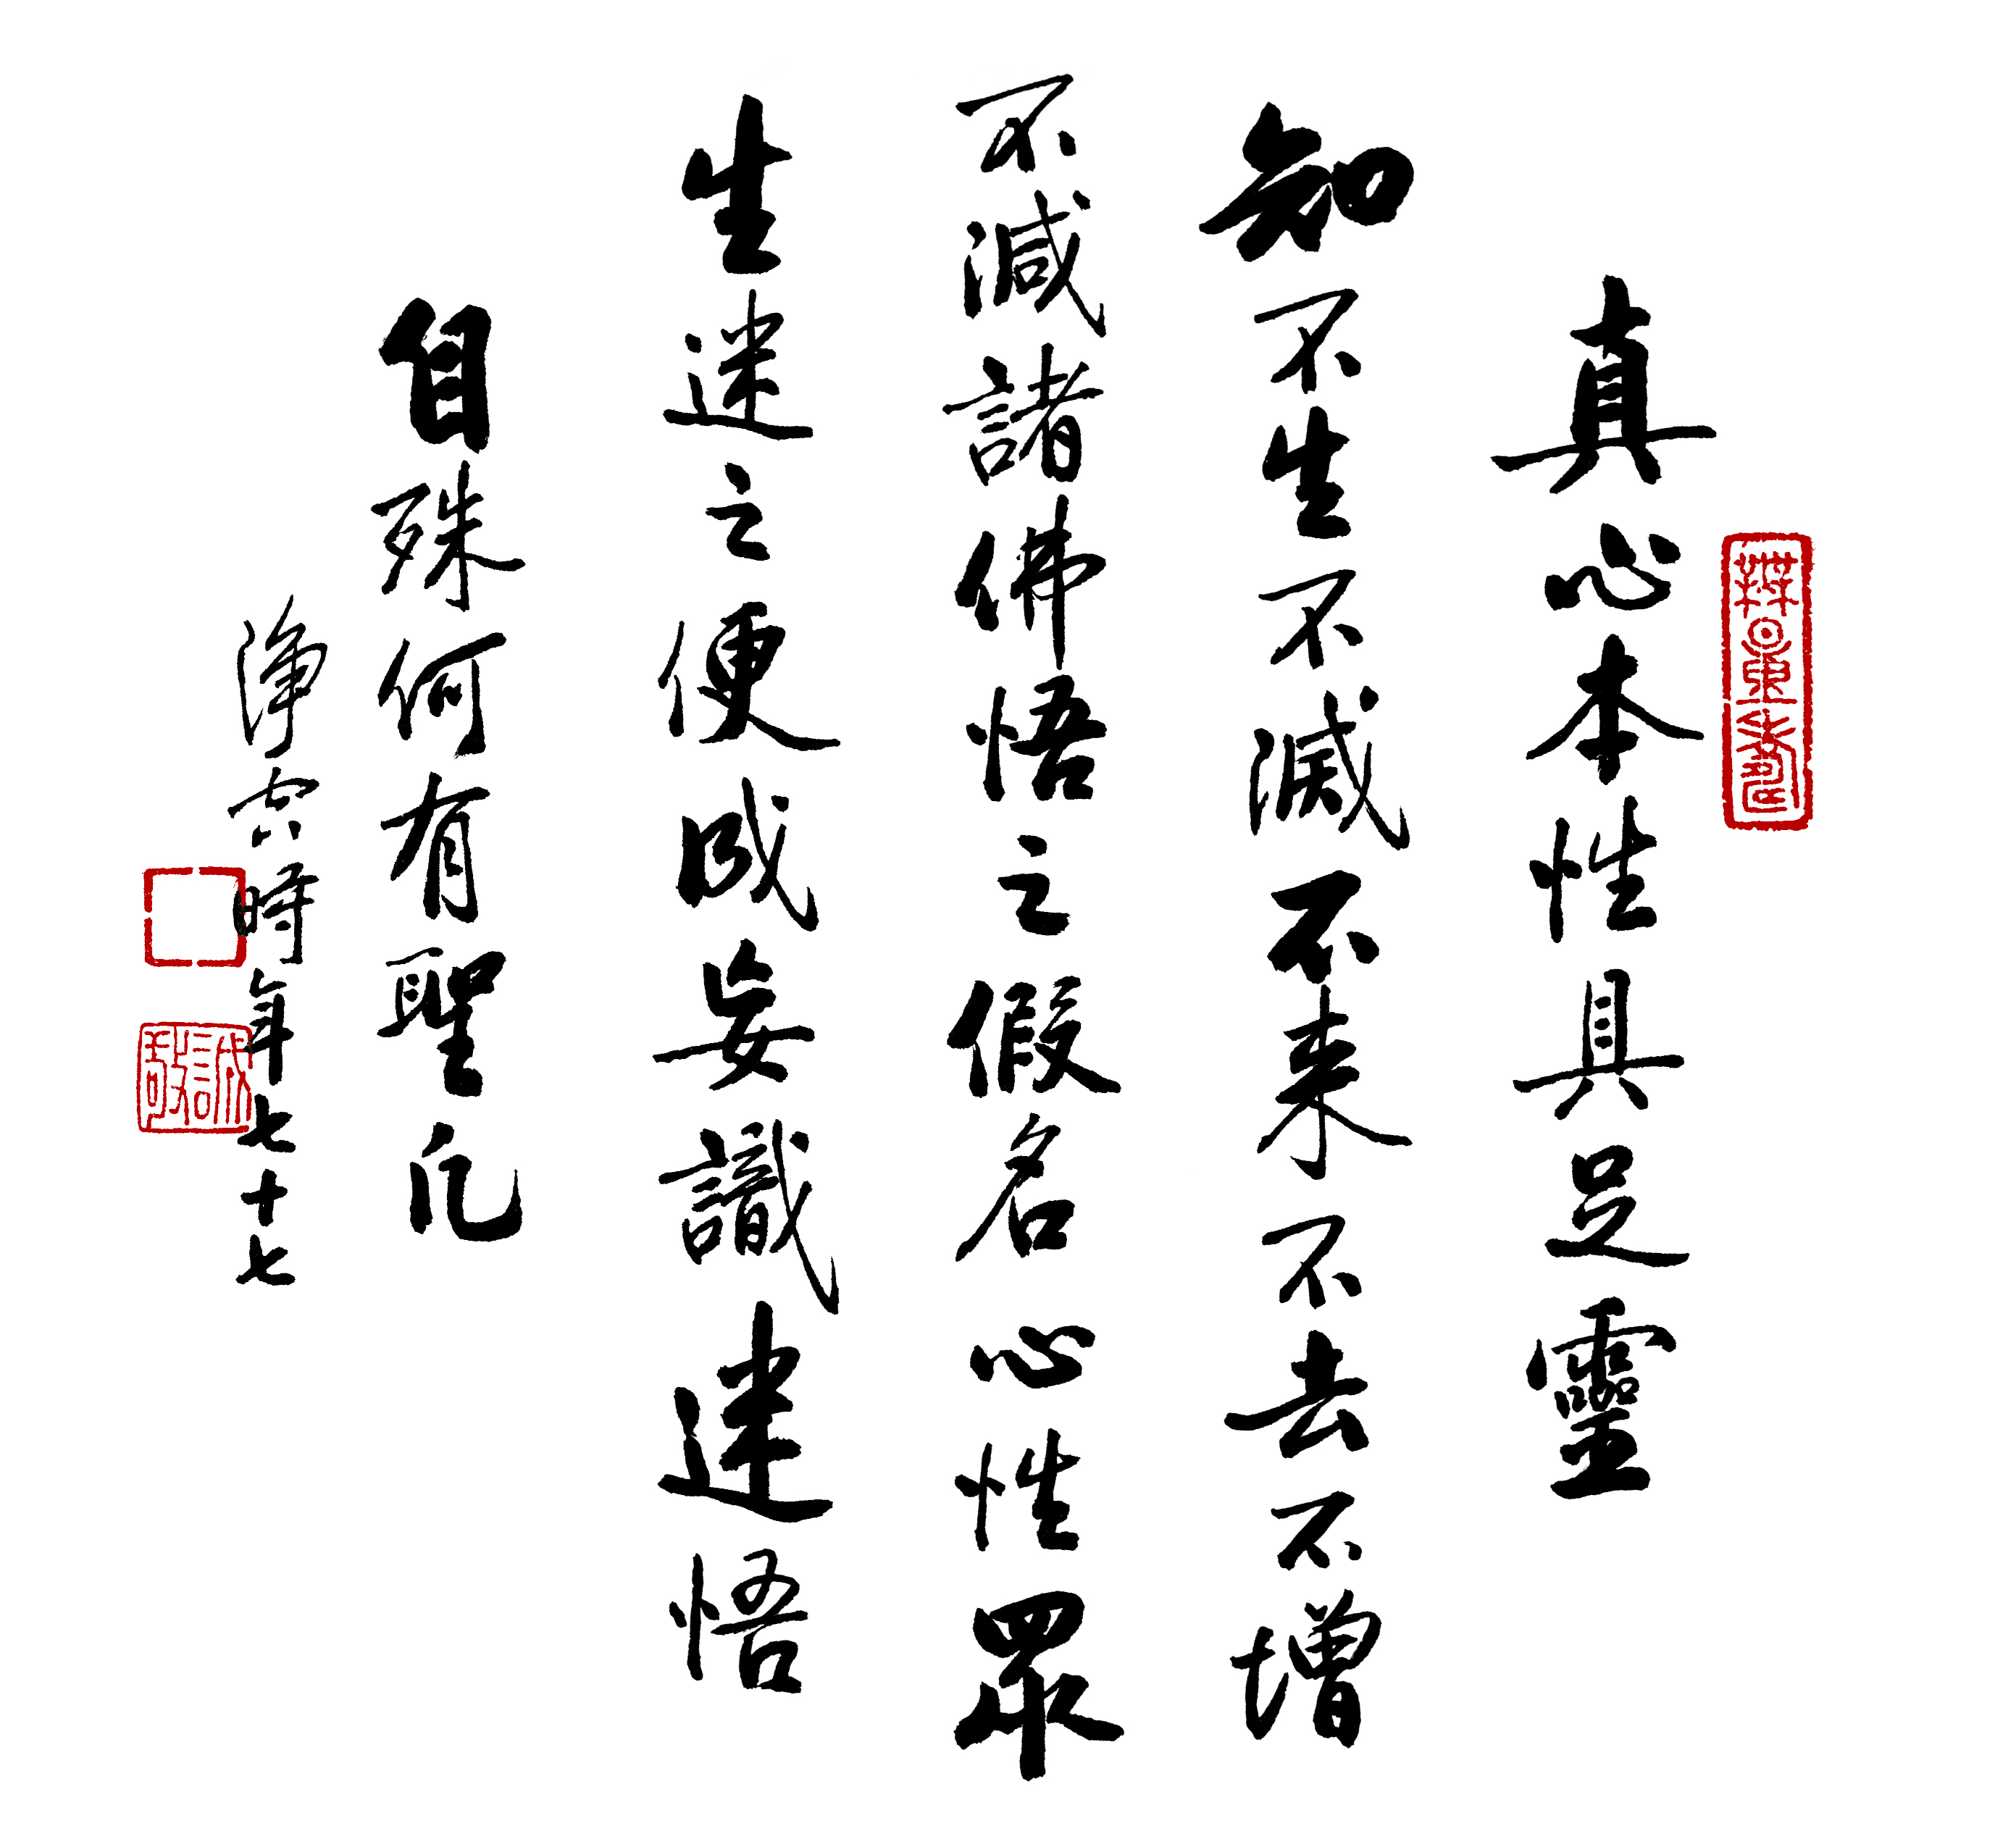 真心本性具足靈
知不生不滅不来不去不增
不減諸佛悟之假名心性眾
生迷之便成妄識迷悟
自殊何有聖凡
淨空時年七十七